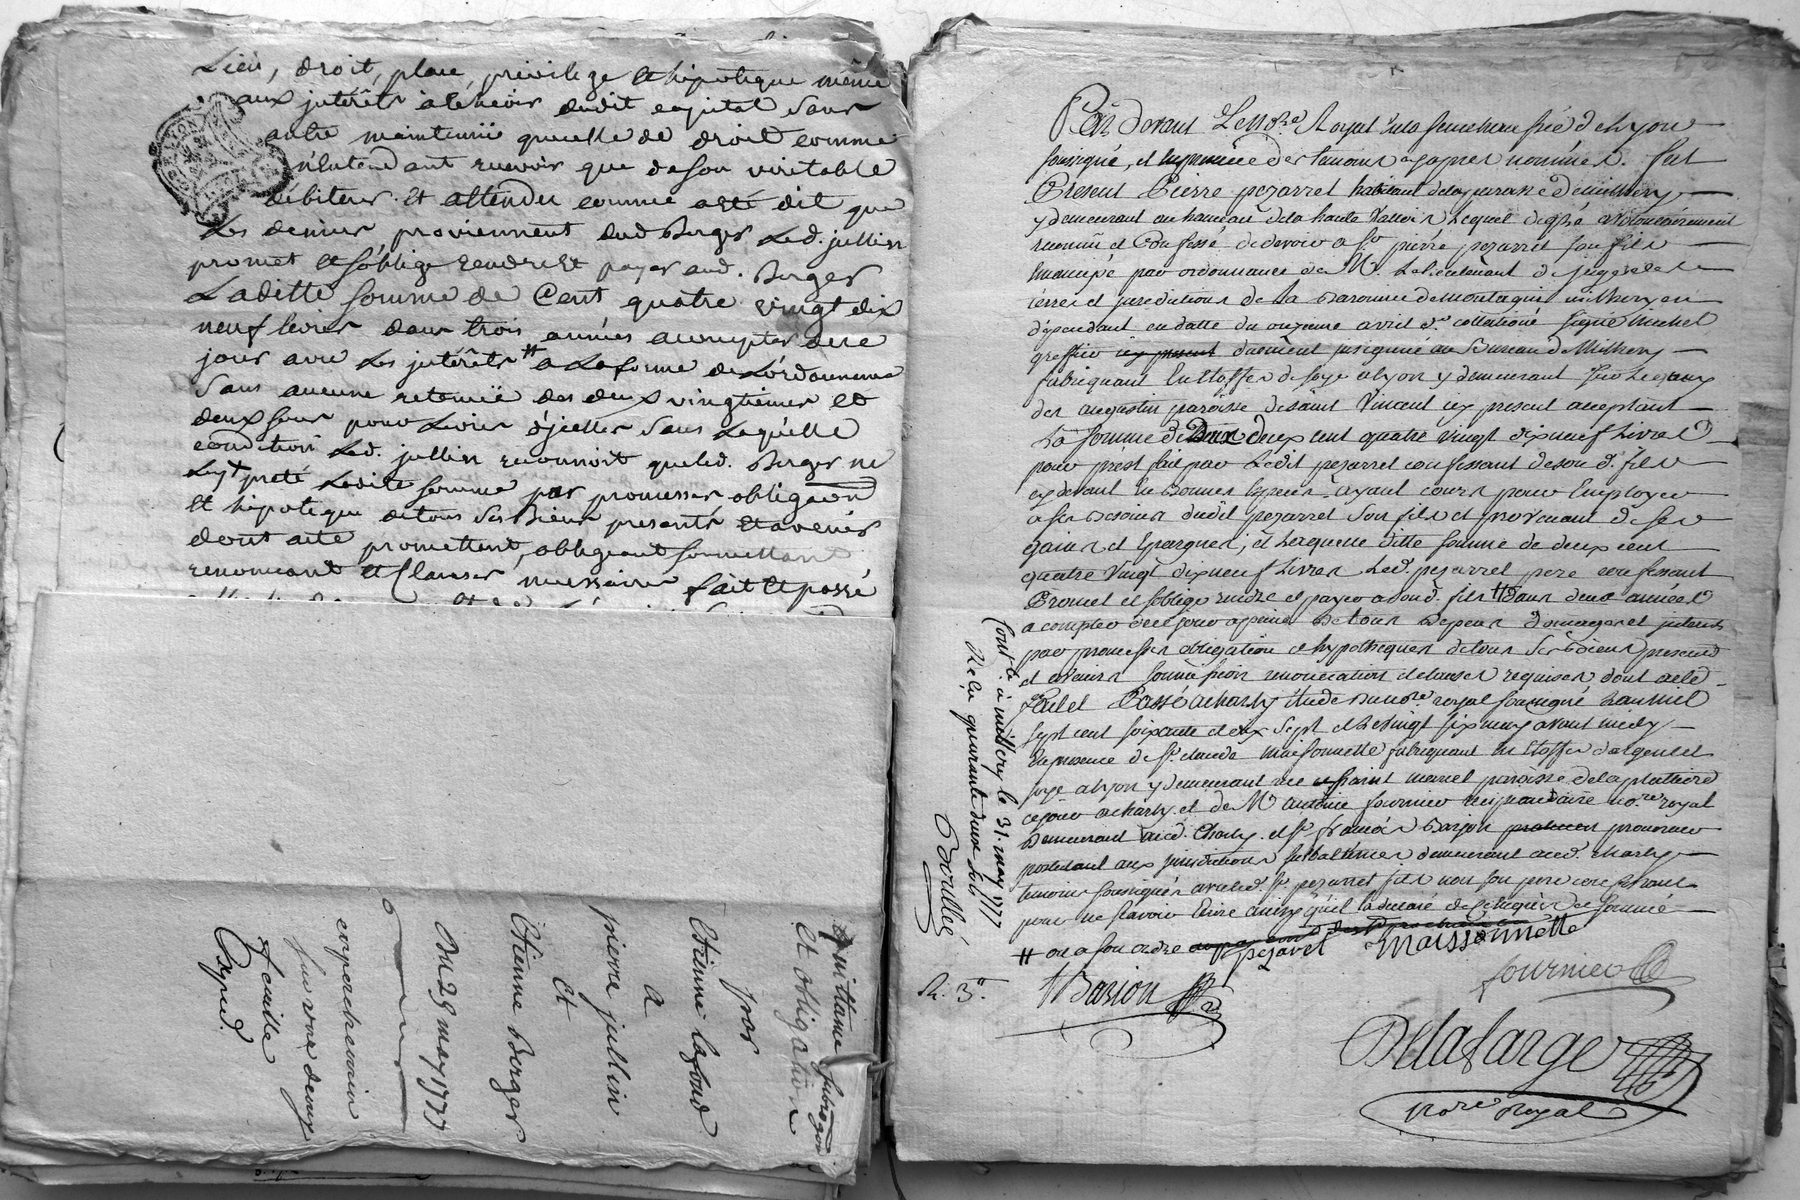 Lieu, droit, place, privilege et hipoteque même
aux interêts à échéoir dudit capital sans
autre maintenüe que celle de droit comme
n'entendant recevoir que de son véritable
débiteur. Et attendu comme a eté dit que
Les deniers proviennent dud. Berger Led. jullien
promet et s'oblige rendre et payer aud. Berger
Laditte somme de Cent quatre vingt dix
neuf livres dans trois années a compter de ce
jour avec Les interêts # a La forme de L'ordonnance
Sans aucune retenüe des deux vingtiemes et
deux sous pour Livres d'jcelles Sans Laquelle
condition Led. jullien reconnoit que led. Berger ne
Luy preté Ladite somme par promesses obligaon
et hipoteque de tous ses Biens presents et avenir
dont acte promettant, obligeant soumettant
renoncant et Clauses necessaires fait et passé
Quittance subrogon
et obligation
pror
Etienne lafond
a
pierre jullin
et
Etienne Berger
Du 28 may 1777
en parchemin
sur une demy
feuille
Exped.
Par devant Le no.re Royal en la senechaussée de Lyon
soussigné, et en presence des temoins cy apres nommés. fut
Present Pierre pezarret habitant de la paroisse de millery
y demeurant au hameau de la haute Valloir Lequel de gré a Volontairement
reconnu et Confessé de devoir a Sr pierre pezarret son fils
emancipé par ordonnance de Mr. Le Lieutenant de juge de la
terre et juridiction de la Baronnie de montagnie millery en
dépendant en datte du onzieme avril dr collationé signé michel
greffier duement insinuée au Bureau de Millery
fabriquant En Etoffes de soye a lyon y demeurant
des augustin paroisse de saint Vincent icy present acceptant
La somme de deux cent quatre vingt dix neuf Livres
pour prest fait par Ledit pezarret confessant de son d. fils
cy devant En Bonnes Especes ayant cours pour Employer
a ses Besoins dudit pezarret son fils et provenant de ses
gains et Epargnes, et Laquelle ditte somme de deux cent
quatre Vingt dix neuf Livres Led. pezarret pere confessant
Promet et s'oblige rendre et payer a sond. fils # dans deux années
a compter de ce jour a peine de tous depens dommages et interets
par promesses obligation et hypotheques de tous ses Biens presents
et avenir soumission renonciation et clauses requises dont acte
Fait et Passé a charly Etude du no.re royal soussigné Lan mil
sept cent soixante dix sept et Le vingt six may avant midy
En presence de Sr. claude maisonnette fabriquant en Etoffes d'argent et
soye a lyon y demeurant rue saint marcel paroisse de la platiere
ce jour a charly et de Mr antoine fournier no.re royal
Demeurant aud. Charly et Sr. francois Barjon procureur
postulant aux juridictions subalternes demeurant aud. charly
temoins soussignés avec led. Sr pezarret fils non son pere confessant
pour ne scavoir Ecrire ainsy qu'il La declaré de ce Enquis et sommé
# ou a son ordre
pezaret Maissonnette
fournier
Barjon
Delafarge
no.re royal
R. 3tt.
Cont.lé à millery le 31. may 1777
Recu quarante deux sols